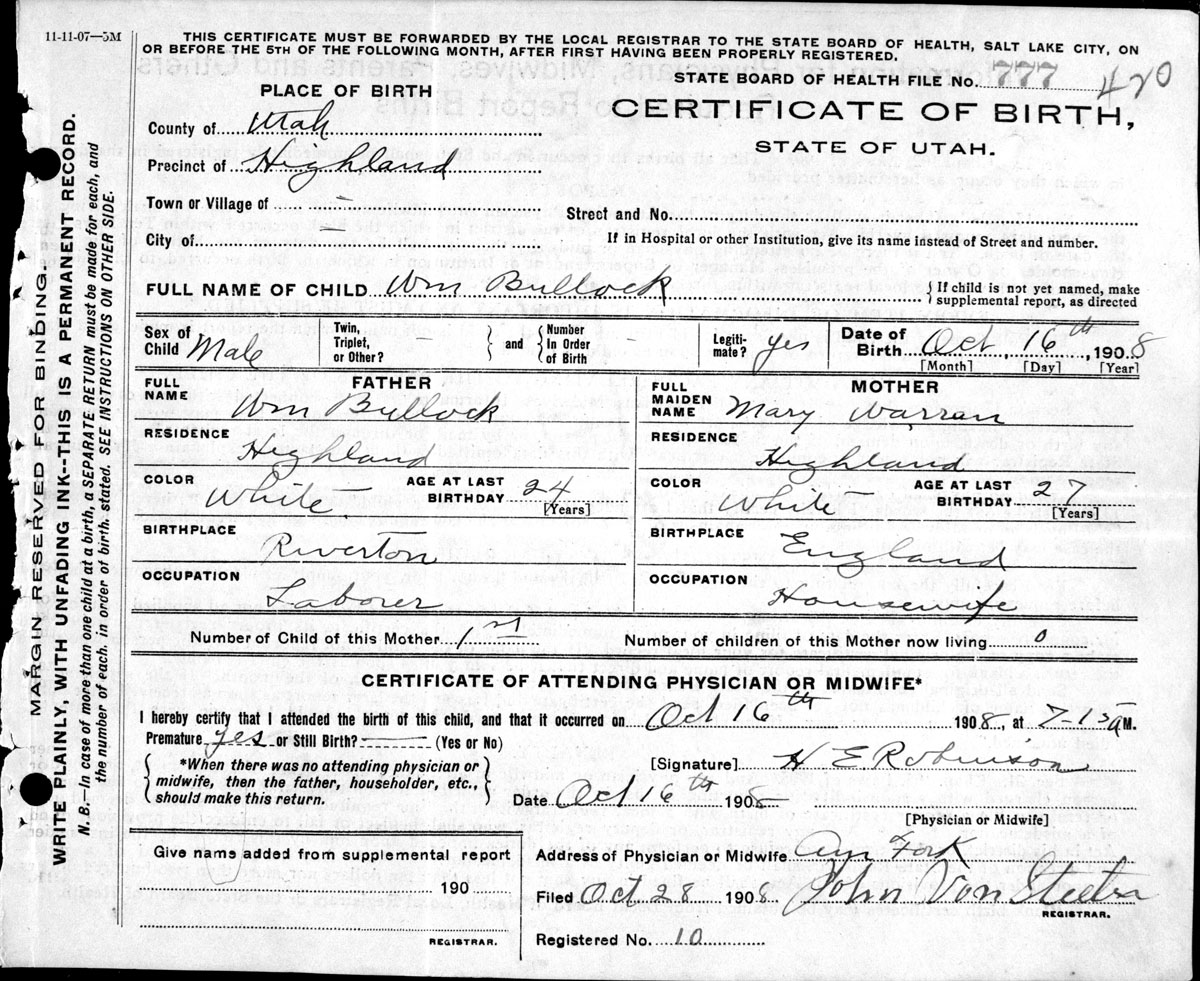 11-11-07—5M
THIS CERTIFICATE MUST BE FORWARDED BY THE LOCAL REGISTRAR TO THE STATE BOARD OF HEALTH, SALT LAKE CITY, ON
OR BEFORE THE 5TH OF THE FOLLOWING MONTH, AFTER FIRST HAVING BEEN PROPERLY REGISTERED.
STATE BOARD OF HEALTH FILE No. 777 420
CERTIFICATE OF BIRTH,
STATE OF UTAH.
PLACE OF BIRTH
County of Utah
Precinct of Highland
Town or Village of -
Street and No.
City of
If in Hospital or other Institution, give its name instead of Street and number.
FULL NAME OF CHILD Wm Bullock
{ If child is not yet named, make
supplemental report, as directed
Sex of Child Male
Twin, Triplet, or Other? -
and
Number In Order of Birth -
Legiti-mate? yes
Date of Birth Oct 16th, 1908
[Month] [Day] [Year]
FATHER
FULL NAME Wm Bullock
RESIDENCE
Highland
COLOR White
AGE AT LAST BIRTHDAY 24
[Years]
BIRTHPLACE
Riverton
OCCUPATION
Laborer
MOTHER
FULL MAIDEN NAME Mary Warren
RESIDENCE
Highland
COLOR White
AGE AT LAST BIRTHDAY 27
[Years]
BIRTHPLACE
England
OCCUPATION
Housewife
Number of Child of this Mother 1st
Number of children of this Mother now living 0
CERTIFICATE OF ATTENDING PHYSICIAN OR MIDWIFE*
I hereby certify that I attended the birth of this child, and that it occurred on Oct 16th 1908, at 7-15 a M.
Premature yes or Still Birth? — (Yes or No)
*When there was no attending physician or
midwife, then the father, householder, etc.,
should make this return.
[Signature] H E Robinson
Date Oct 16th 1908
[Physician or Midwife]
Give name added from supplemental report
190
REGISTRAR.
Address of Physician or Midwife Am Fork
Filed Oct 28 1908 John Von
REGISTRAR.
Registered No. 10
MARGIN RESERVED FOR BINDING.
WRITE PLAINLY, WITH UNFADING INK--THIS IS A PERMANENT RECORD.
N. B.—In case of more than one child at a birth, a SEPARATE RETURN must be made for each, and
the number of each, in order of birth, stated. SEE INSTRUCTIONS ON OTHER SIDE.